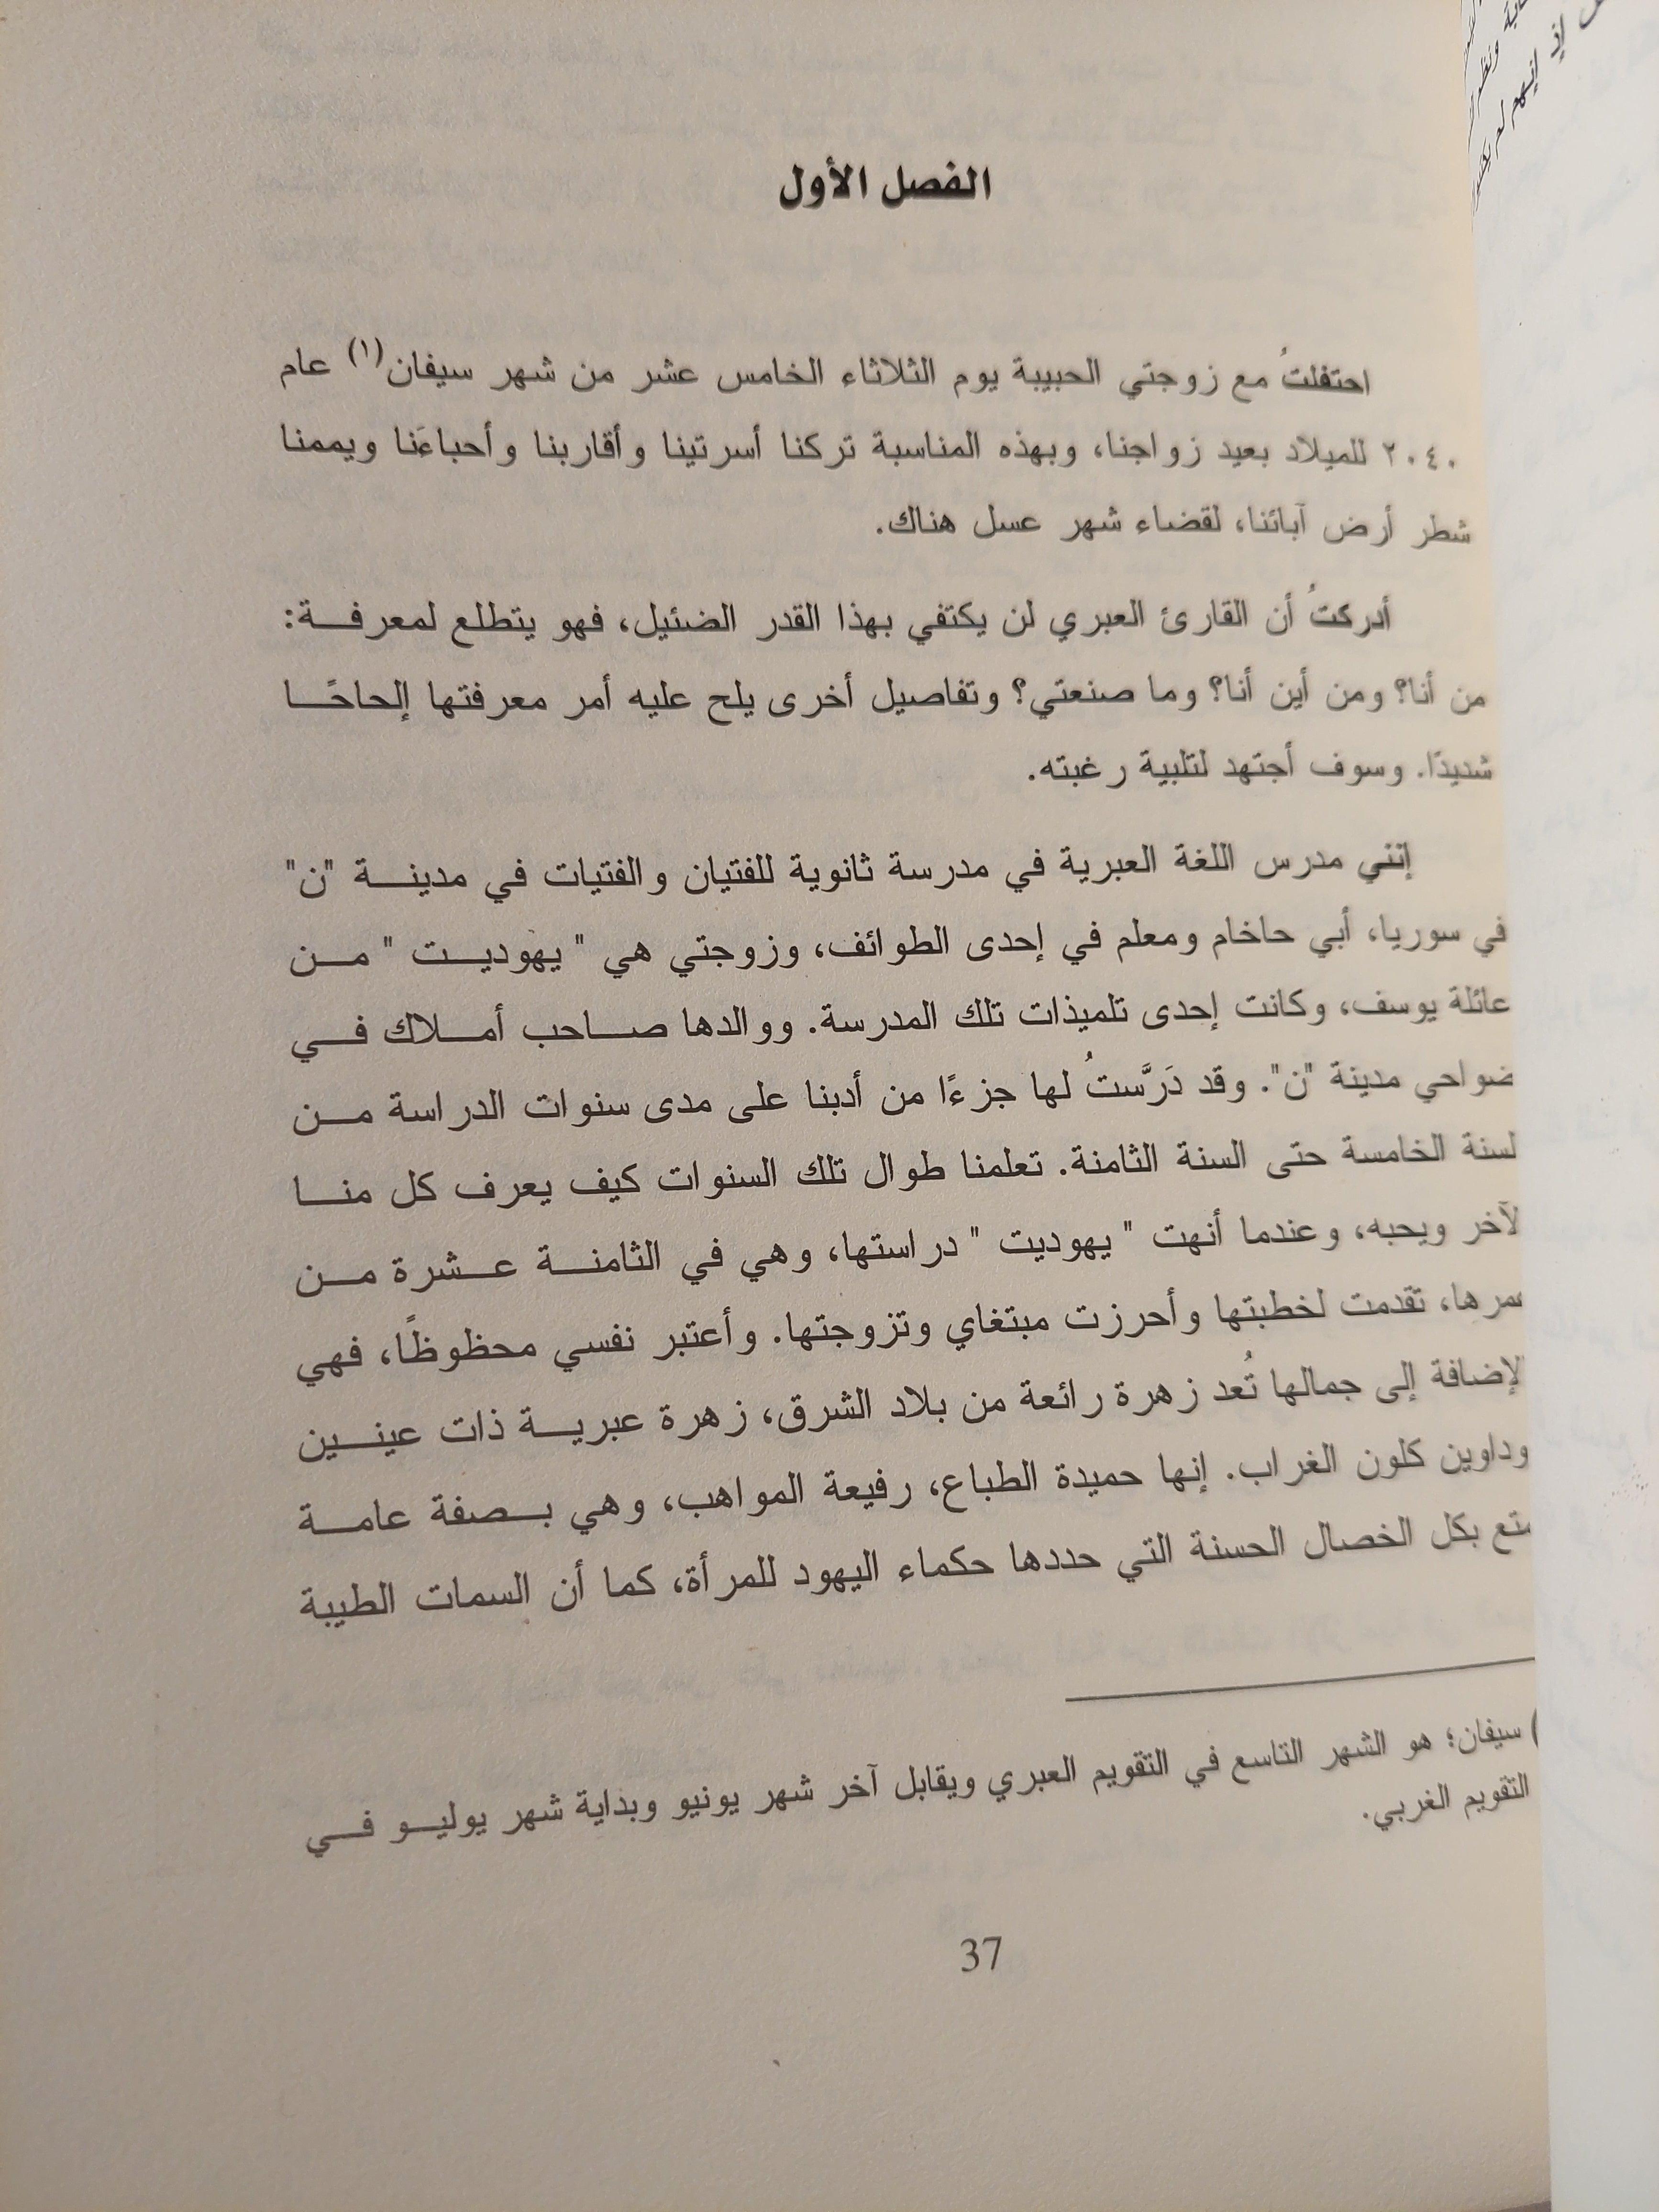 الفصل الأول
احتفلتُ مع زوجتي الحبيبة يوم الثلاثاء الخامس عشر من شهر سيفان(١) عام
٢٠٤٠ للميلاد بعيد زواجنا، وبهذه المناسبة تركنا أسرتينا وأقاربنا وأحباءَنا ويممنا
شطر أرض آبائنا، لقضاء شهر عسل هناك.
أدركتُ أن القارئ العبري لن يكتفي بهذا القدر الضئيل، فهو يتطلع لمعرفة:
من أنا؟ ومن أين أنا؟ وما صنعتي؟ وتفاصيل أخرى يلح عليه أمر معرفتها إلحاحًا
شديدًا. وسوف أجتهد لتلبية رغبته.
إنني مدرس اللغة العبرية في مدرسة ثانوية للفتيان والفتيات في مدينة "ن"
في سوريا، أبي حاخام ومعلم في إحدى الطوائف، وزوجتي هي " يهوديت " من
عائلة يوسف، وكانت إحدى تلميذات تلك المدرسة. ووالدها صاحب أملاك في
ضواحي مدينة "ن". وقد دَرَّستُ لها جزءًا من أدبنا على مدى سنوات الدراسة من
لسنة الخامسة حتى السنة الثامنة. تعلمنا طوال تلك السنوات كيف يعرف كل منا
لآخر ويحبه، وعندما أنهت " يهوديت " دراستها، وهي في الثامنة عشرة من
عمرها، تقدمت لخطبتها وأحرزت مبتغاي وتزوجتها. وأعتبر نفسي محظوظًا، فهي
لإضافة إلى جمالها تُعد زهرة رائعة من بلاد الشرق، زهرة عبرية ذات عينين
وداوين كلون الغراب. إنها حميدة الطباع، رفيعة المواهب، وهي بصفة عامة
متع بكل الخصال الحسنة التي حددها حكماء اليهود للمرأة، كما أن السمات الطيبة
) سيفان؛ هو الشهر التاسع في التقويم العبري ويقابل آخر شهر يونيو وبداية شهر يوليو في
التقويم الغربي.
37